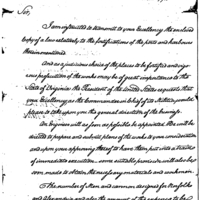 Sir,
I am instructed to transmit to your Excellency the enclosed
copy of a Law relatively to the fortifications of the ports and harbours
therein mentioned
And as a judicious choice of the places to be fortified and vigor
ous prosecution of the works may be of great importance to the
State of Virginia the President of the United States requests that
your Excellency as the Commander in chief of its Militia would
please to take upon you the general direction of the business.
An Engineer will as soon as possible be appointed He will be
directed to prepare and submit plans of the works to your consideration
and upon your approving thereof to have them put into a train
of immediate execution some suitable provision will also be
made to obtain the necessary materials and workmen
The number of Men and cannon designed for Norfolk
and Alexandria and also the amount of the expences to be